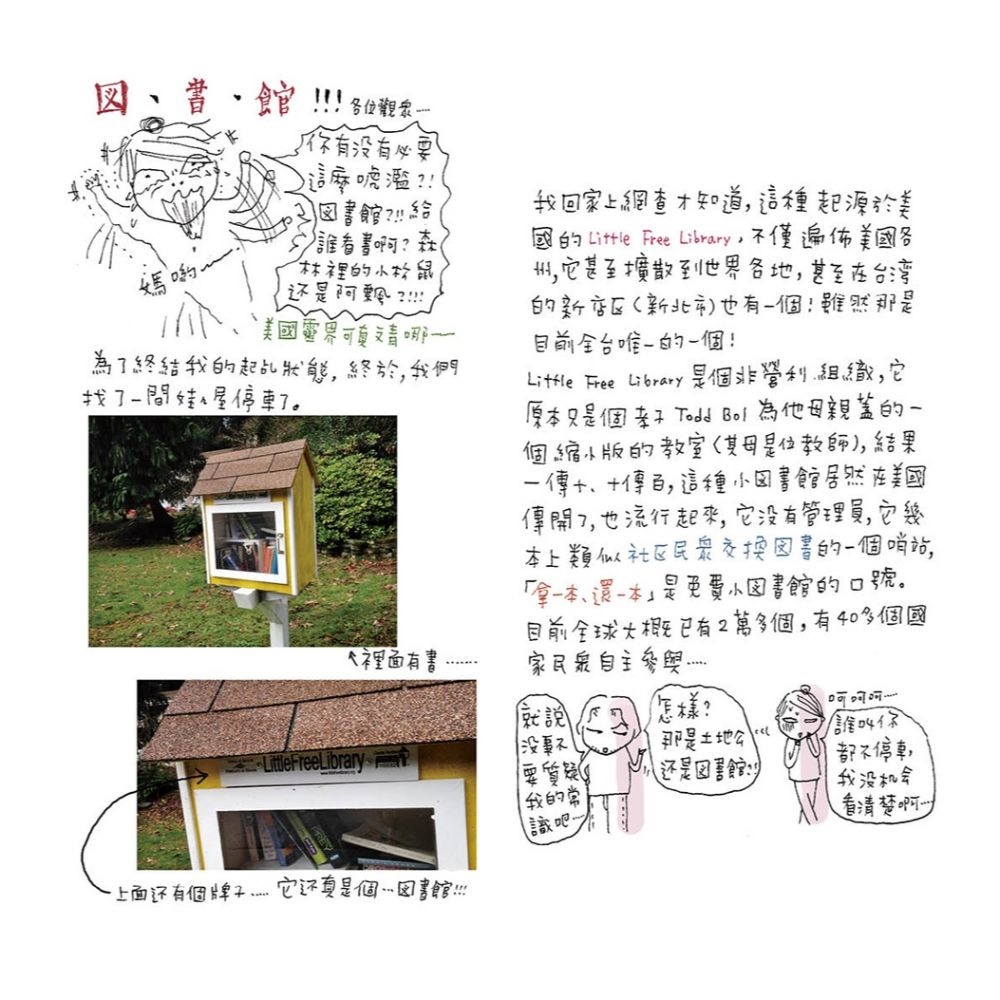 図、書、館!!! 各位觀眾……
你有没有必要
這麼唬濫?!
図書館?!!給
誰看書啊?森
林裡的小松鼠
还是阿飄?!!!
媽喲～
美國靈界可真文青哪──
為了終結我的起乩狀態,終於,我們
找了一間娃々屋停車了。
LittleFreeLibrary
www.littlefreelibrary.org
↖裡面有書……
上面还有個牌子…… 它还真是個…図書館!!!
我回家上網查才知道,這種起源於美
國的Little Free Library,不僅遍佈美國各
州,它甚至擴散到世界各地,甚至在台湾
的新店区(新北市)也有一個!雖然那是
目前全台唯一的一個!
Little Free Library是個非營利組織,它
原本只是個孝子Todd Bol為他母親蓋的一
個縮小版的教室(其母是位教師),結果
一傳十、十傳百,這種小図書館居然在美國
傳開了,也流行起來,它没有管理員,它幾
本上類似社区民眾交換図書的一個哨站,
「拿一本、還一本」是免費小図書館的口號。
目前全球大概已有2萬多個,有40多個國
家民眾自主參與……
就說
没事不
要質疑
我的常
識吧……
怎樣?
那是土地公
还是図書館?!
呵呵呵……
誰叫你
都不停車,
我没机会
看清楚啊…